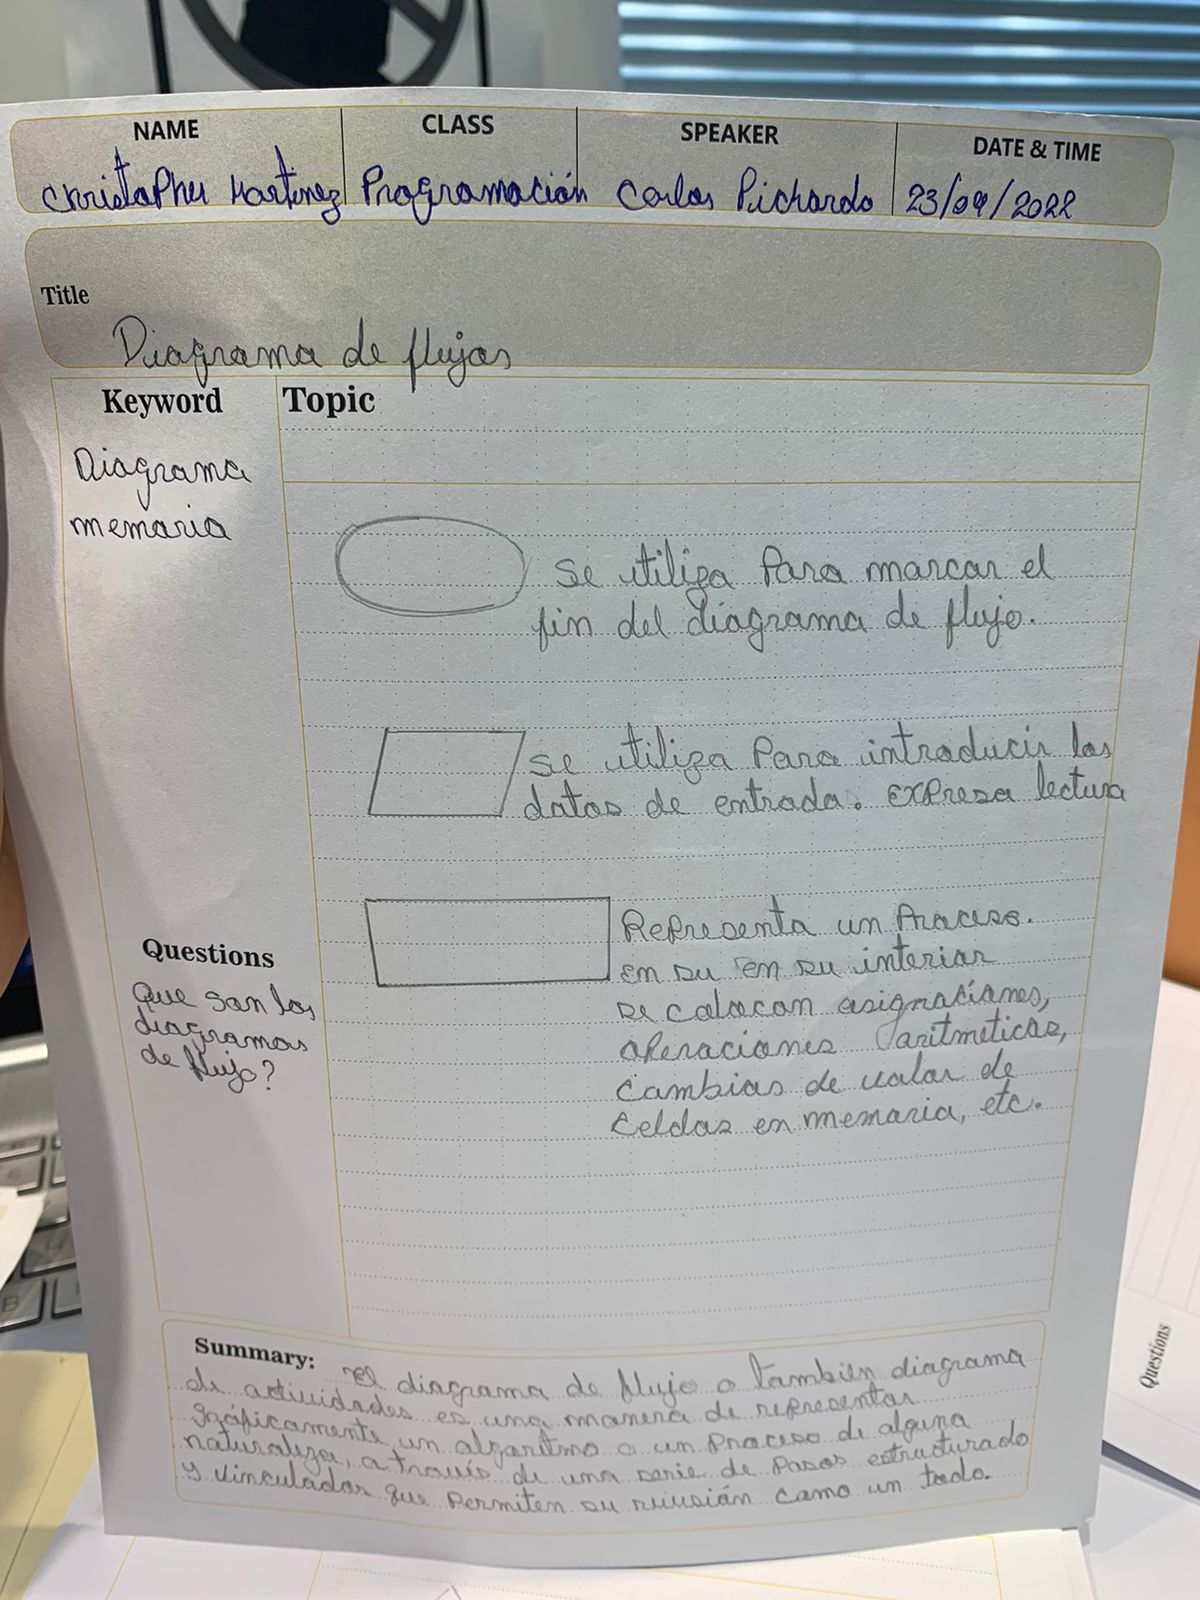 NAME
CLASS
SPEAKER
DATE & TIME
Christopher Martinez
Programación
Carlos Pichardo
23/09/2022
Title
Diagrama de flujos
Keyword
Topic
Diagrama
memoria
se utiliza Para marcar el
fin del diagrama de flujo.
se utiliza Para introducir los
datos de entrada. Expresa lectura
Representa un Proceso.
En su en su interior
se colocan asignaciones,
operaciones aritmeticas,
cambios de valor de
celdas en memoria, etc.
Questions
Que son los
diagramas
de flujo?
Summary: El diagrama de flujo o tambien diagrama
de actividades es una manera de representar
gráficamente un algoritmo o un proceso de alguna
naturaleza, a través de una serie de Pasos estructurado
y vinculados que Permiten su revisión como un todo.
Questions
B